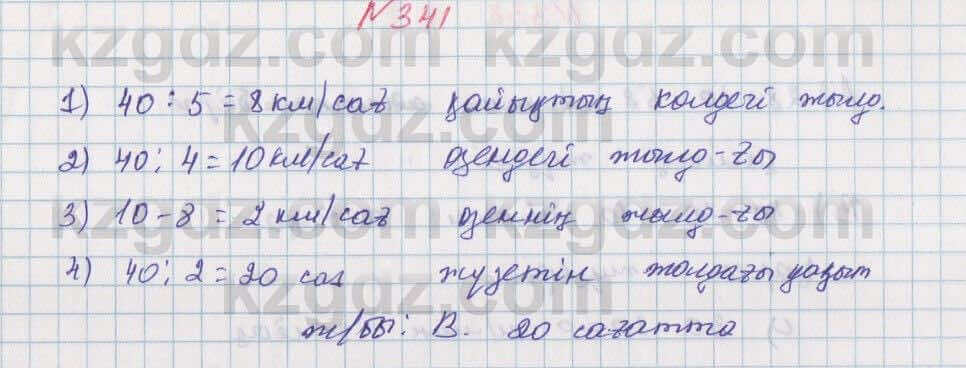 №341
1) 40 : 5 = 8 км/сағ қайықтың көлдегі жылд.
2) 40 : 4 = 10 км/сағ өзендегі жылд-ғы
3) 10 - 8 = 2 км/сағ өзеннің жылд-ғы
4) 40 : 2 = 20 сағ жүзетін жолдағы уақыт
ж/бы: В. 20 сағатта